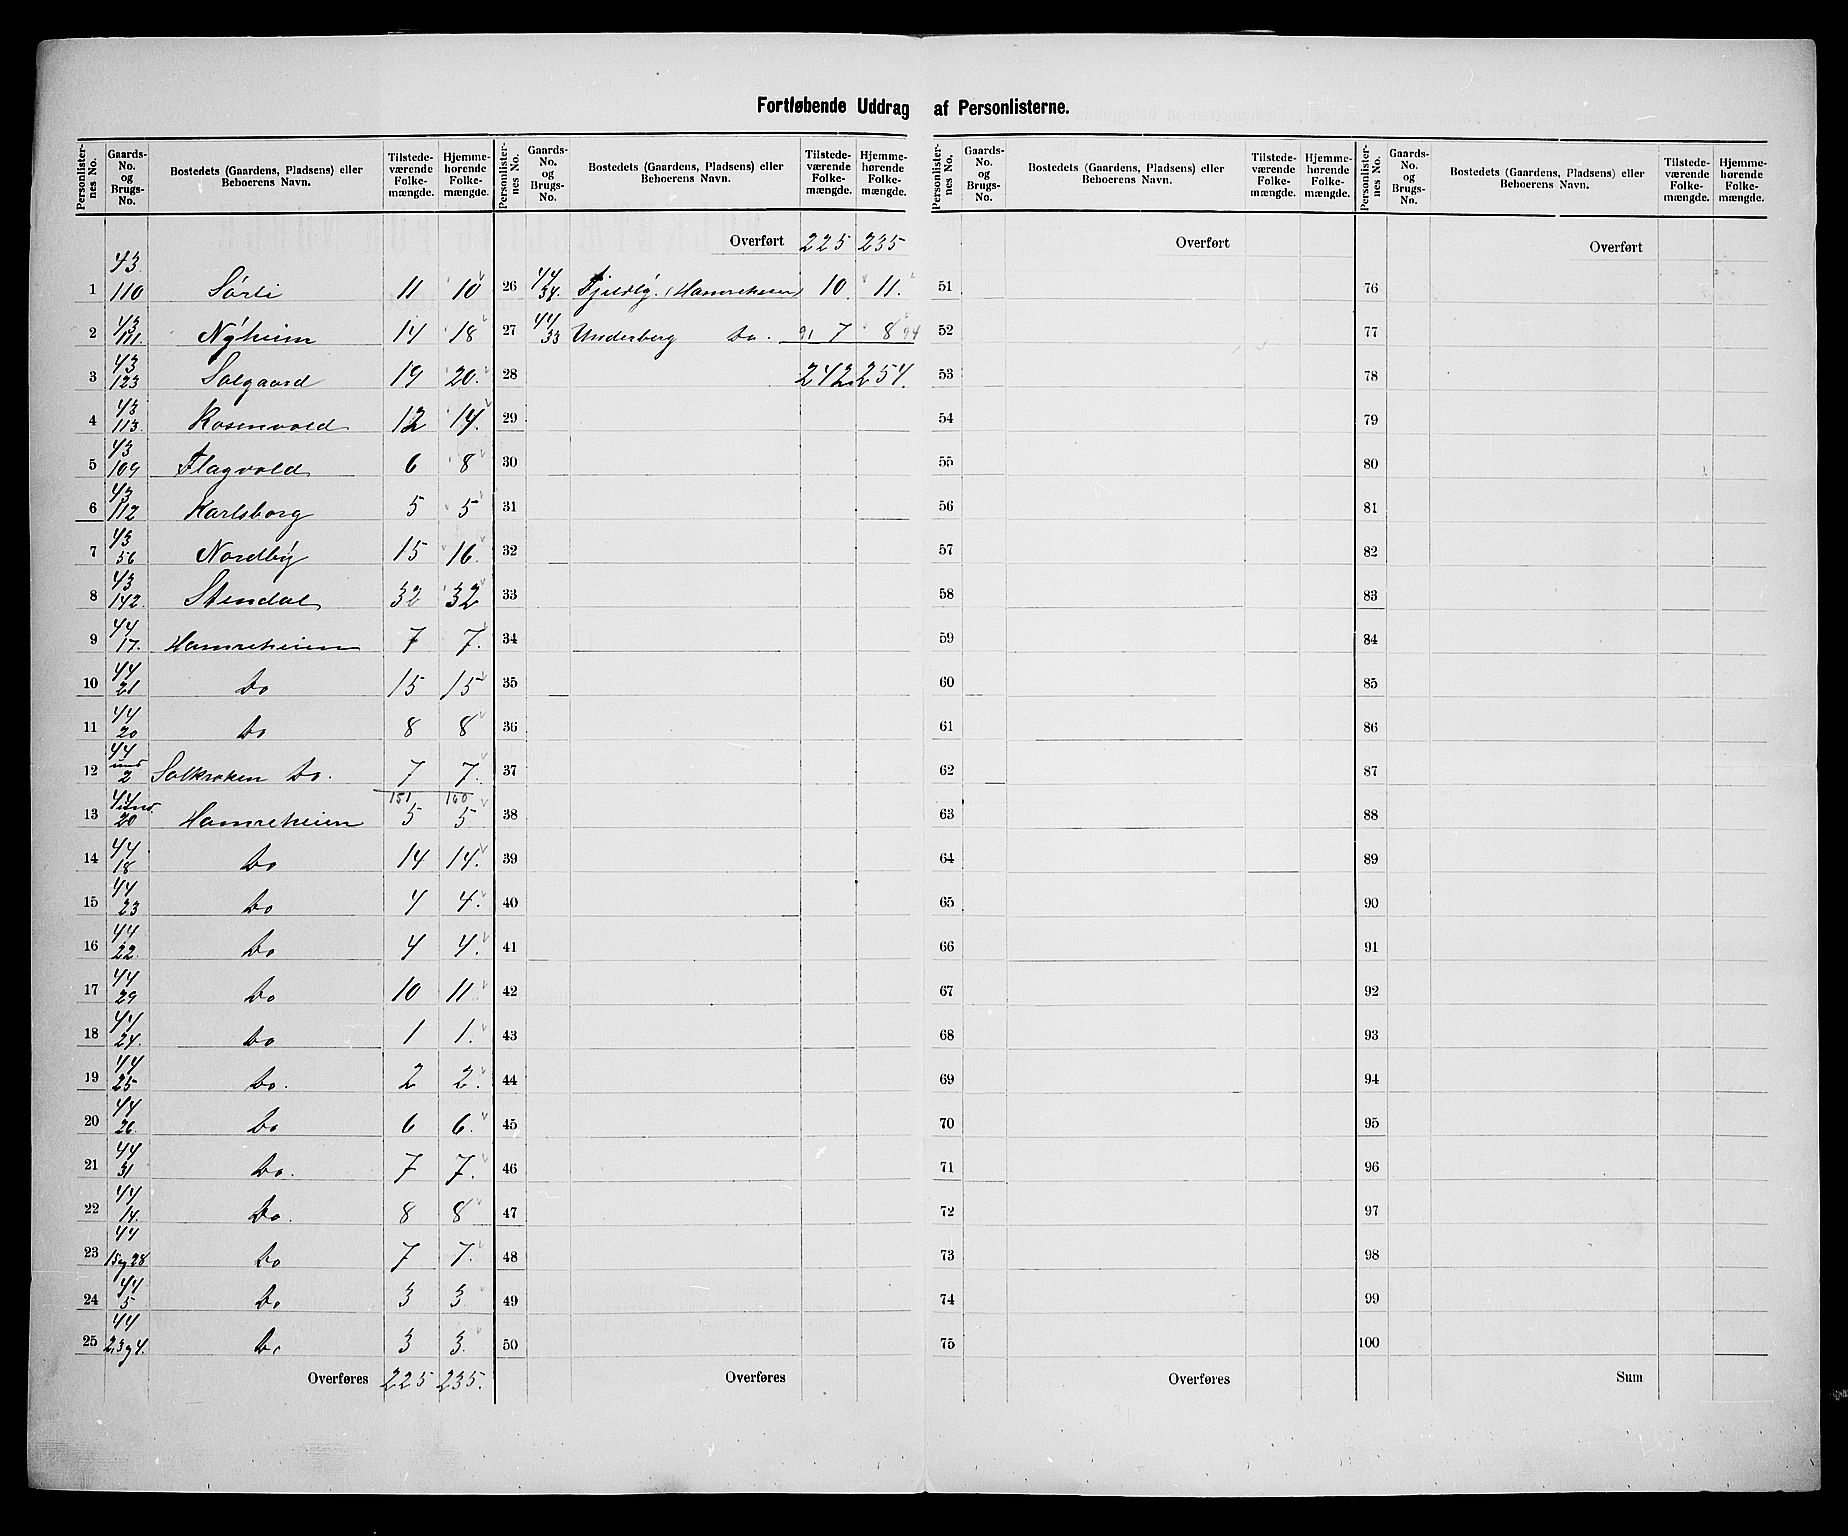 Fortløbende Uddrag af Personlisterne.
Personlisternes No. | Gaards-No. og Brugs-No. | Bostedets (Gaardens, Pladsens) eller Beboerens Navn. | Tilstedeværende Folkemængde. | Hjemmehørende Folkemængde.
1 | 43/110 | Sørli | 11 | 10
2 | 43/111. | Nyheim | 14 | 18
3 | 43/123 | Solgaard | 19 | 20.
4 | 43/113. | Rosenvold | 12 | 14.
5 | 43/109 | Flagvold | 6 | 8
6 | 43/112 | Karlsborg | 5 | 5
7 | 43/56 | Nordby | 15 | 16.
8 | 43/142. | Stendal | 32 | 32
9 | 44/17. | Hamreheien | 7 | 7.
10 | 44/21 | Do | 15 | 15
11 | 44/20 | Do | 8 | 8
12 | 44/und 2 | Solkroken Do. | 7 | 7.
151 | 160
13 | 44/und. 20 | Hamreheien | 5 | 5.
14 | 44/18 | Do | 14 | 14.
15 | 44/23 | Do | 4 | 4.
16 | 44/22. | Do | 4 | 4.
17 | 44/29 | Do | 10 | 11.
18 | 44/24. | Do | 1 | 1.
19 | 44/25 | Do. | 2 | 2.
20 | 44/26. | Do | 6 | 6.
21 | 44/31 | Do. | 7 | 7.
22 | 44/14. | Do. | 8 | 8
23 | 44/15og28 | Do | 7 | 7.
24 | 44/5 | Do | 3 | 3
25 | 44/2,3og4. | Do | 3 | 3.
Overføres | 225 | 235.
Personlisternes No. | Gaards-No. og Brugs-No. | Bostedets (Gaardens, Pladsens) eller Beboerens Navn. | Tilstedeværende Folkemængde. | Hjemmehørende Folkemængde.
Overført | 225 | 235
26 | 44/34. | Fjeldby. (Hamreheien) | 10. | 11.
27 | 44/33 | Underberg Do. | 91 7 | 8 94
28 | 242 | 254.
29
30
31
32
33
34
35
36
37
38
39
40
41
42
43
44
45
46
47
48
49
50
Overføres
Personlisternes No. | Gaards-No. og Brugs-No. | Bostedets (Gaardens, Pladsens) eller Beboerens Navn. | Tilstedeværende Folkemængde. | Hjemmehørende Folkemængde.
Overført
51
52
53
54
55
56
57
58
59
60
61
62
63
64
65
66
67
68
69
70
71
72
73
74
75
Overføres
Personlisternes No. | Gaards-No. og Brugs-No. | Bostedets (Gaardens, Pladsens) eller Beboerens Navn. | Tilstedeværende Folkemængde. | Hjemmehørende Folkemængde.
Overført
76
77
78
79
80
81
82
83
84
85
86
87
88
89
90
91
92
93
94
95
96
97
98
99
100
Sum